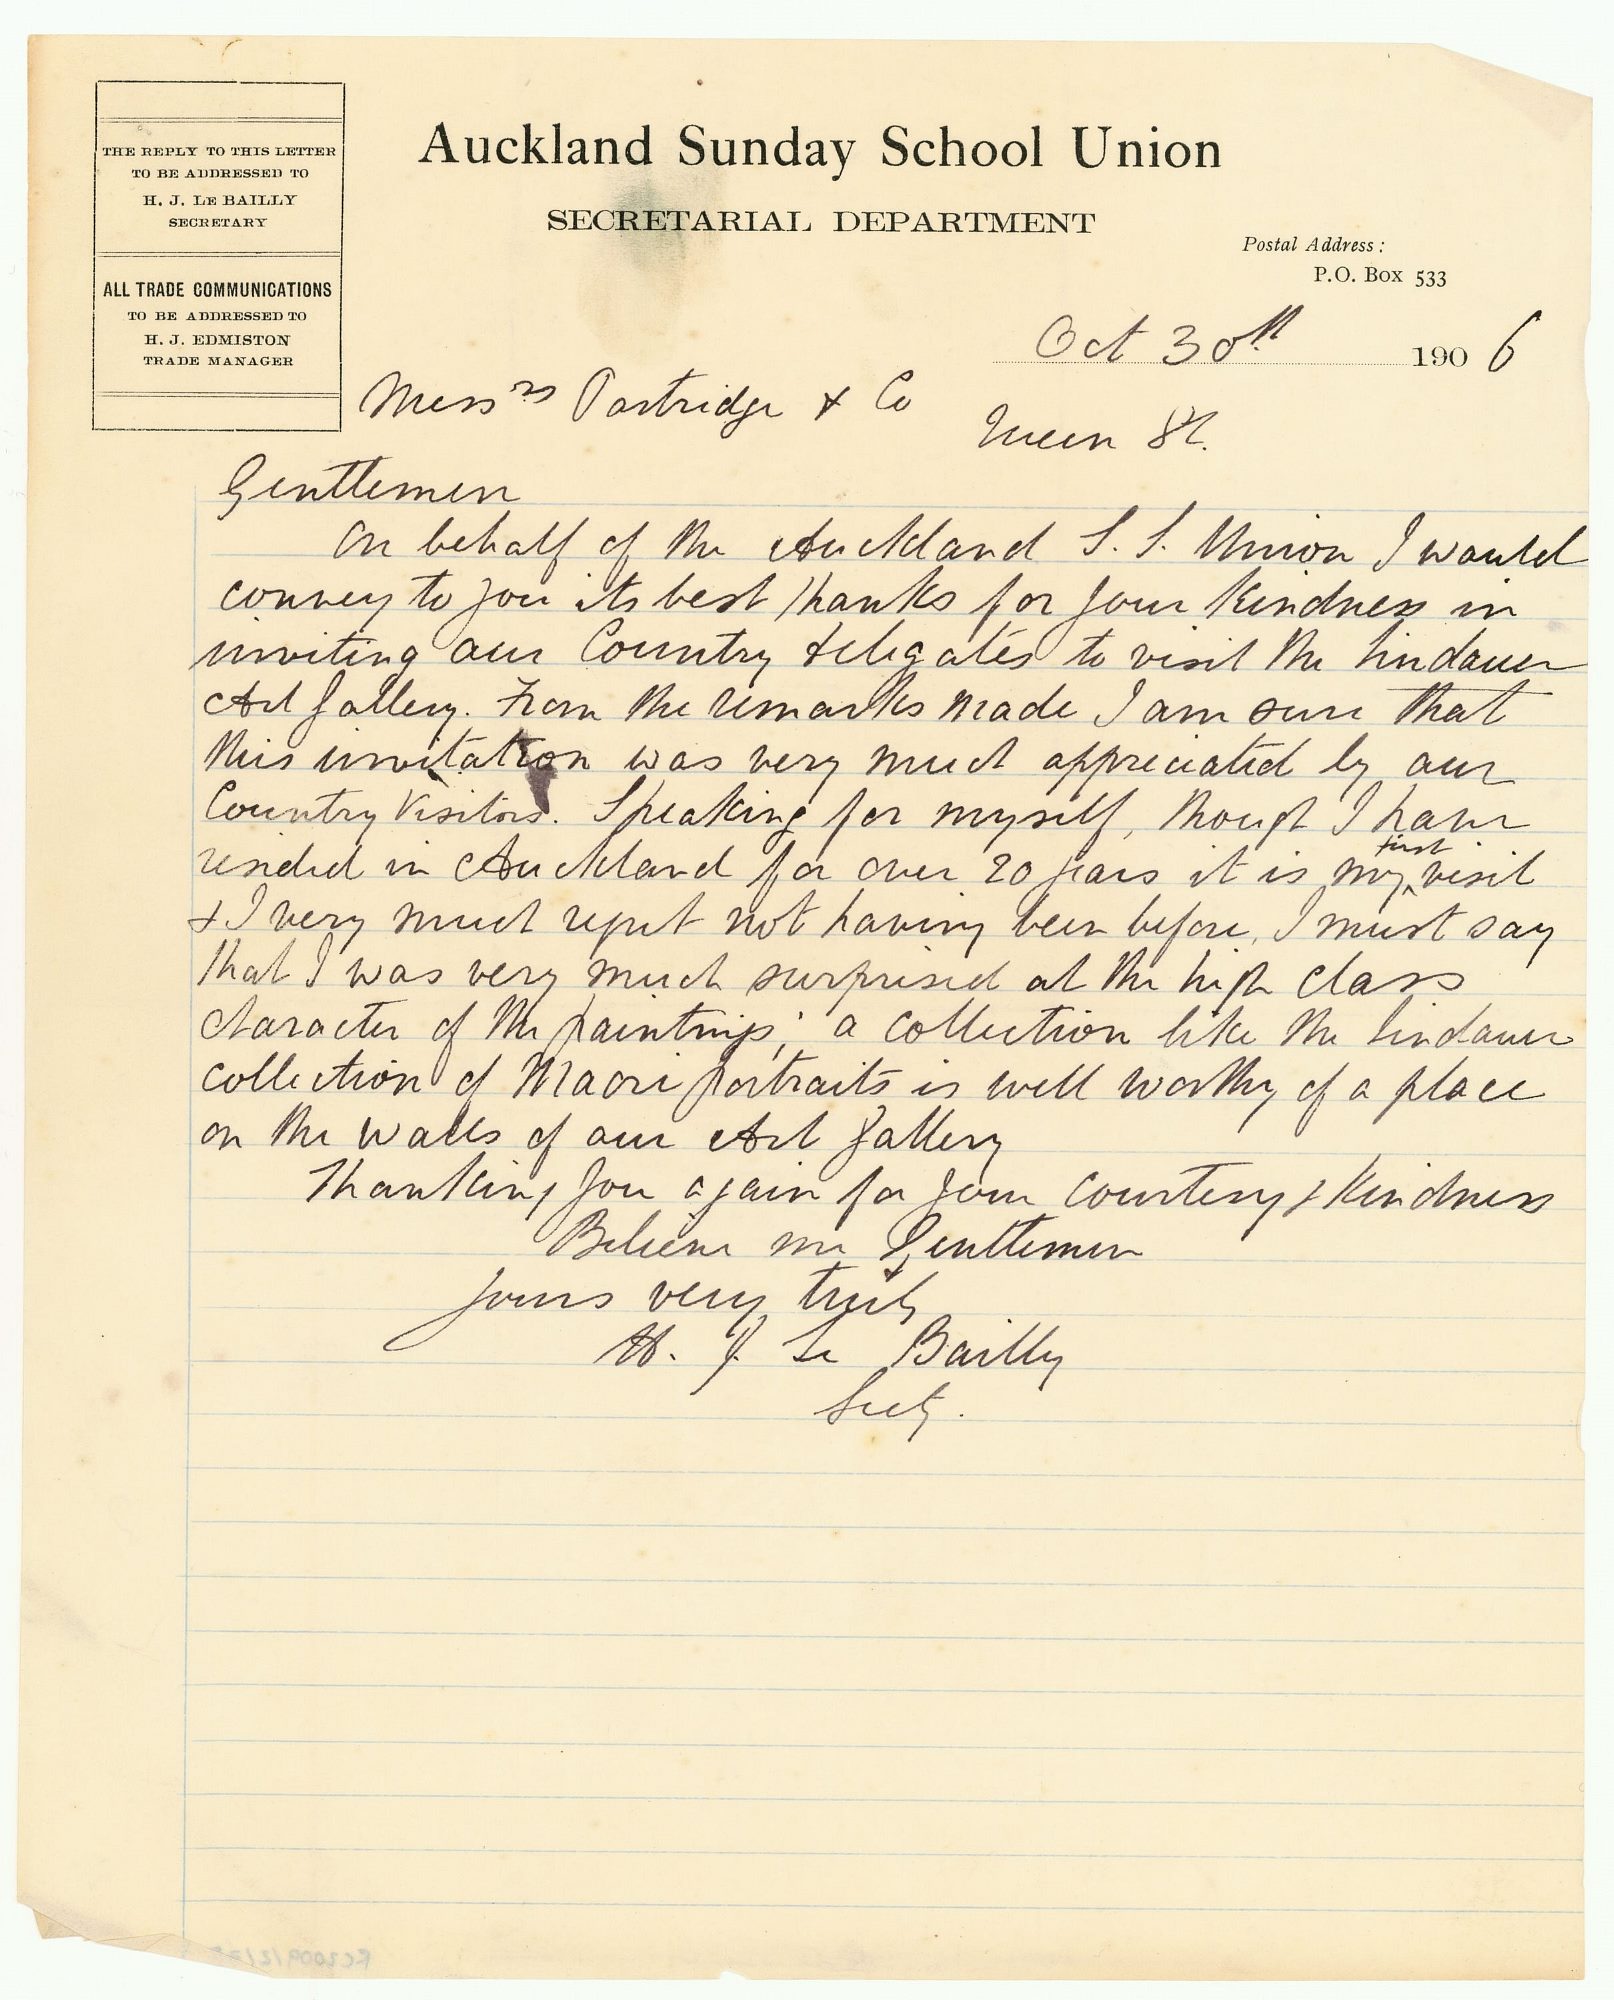 THE REPLY TO THIS LETTER
TO BE ADDRESSED TO
H. J. LE BAILLY
SECRETARY
ALL TRADE COMMUNICATIONS
TO BE ADDRESSED TO
H. J. EDMISTON
TRADE MANAGER
Auckland Sunday School Union
SECRETARIAL DEPARTMENT
Postal Address:
P.O. Box 533
Oct 30th 1906
Messrs Partridge & Co
Queen St.
Gentlemen
On behalf of the Auckland S. S. Union I would
convey to you its best thanks for your kindness in
inviting our Country delegates to visit the Lindauer
Art Gallery. From the remarks made I am sure that
this invitation was very much appreciated by our
Country Visitors. Speaking for myself, though I have
resided in Auckland for over 20 years it is my first visit
& I very much regret not having been before, I must say
that I was very much surprised at the high class
character of the paintings; a collection like the Lindauer
collection of Maori portraits is well worthy of a place
on the walls of our Art Gallery
Thanking you again for your courtesy & kindness
Believe me Gentlemen
Yours very truly
H. J. Le Bailly
Secty.